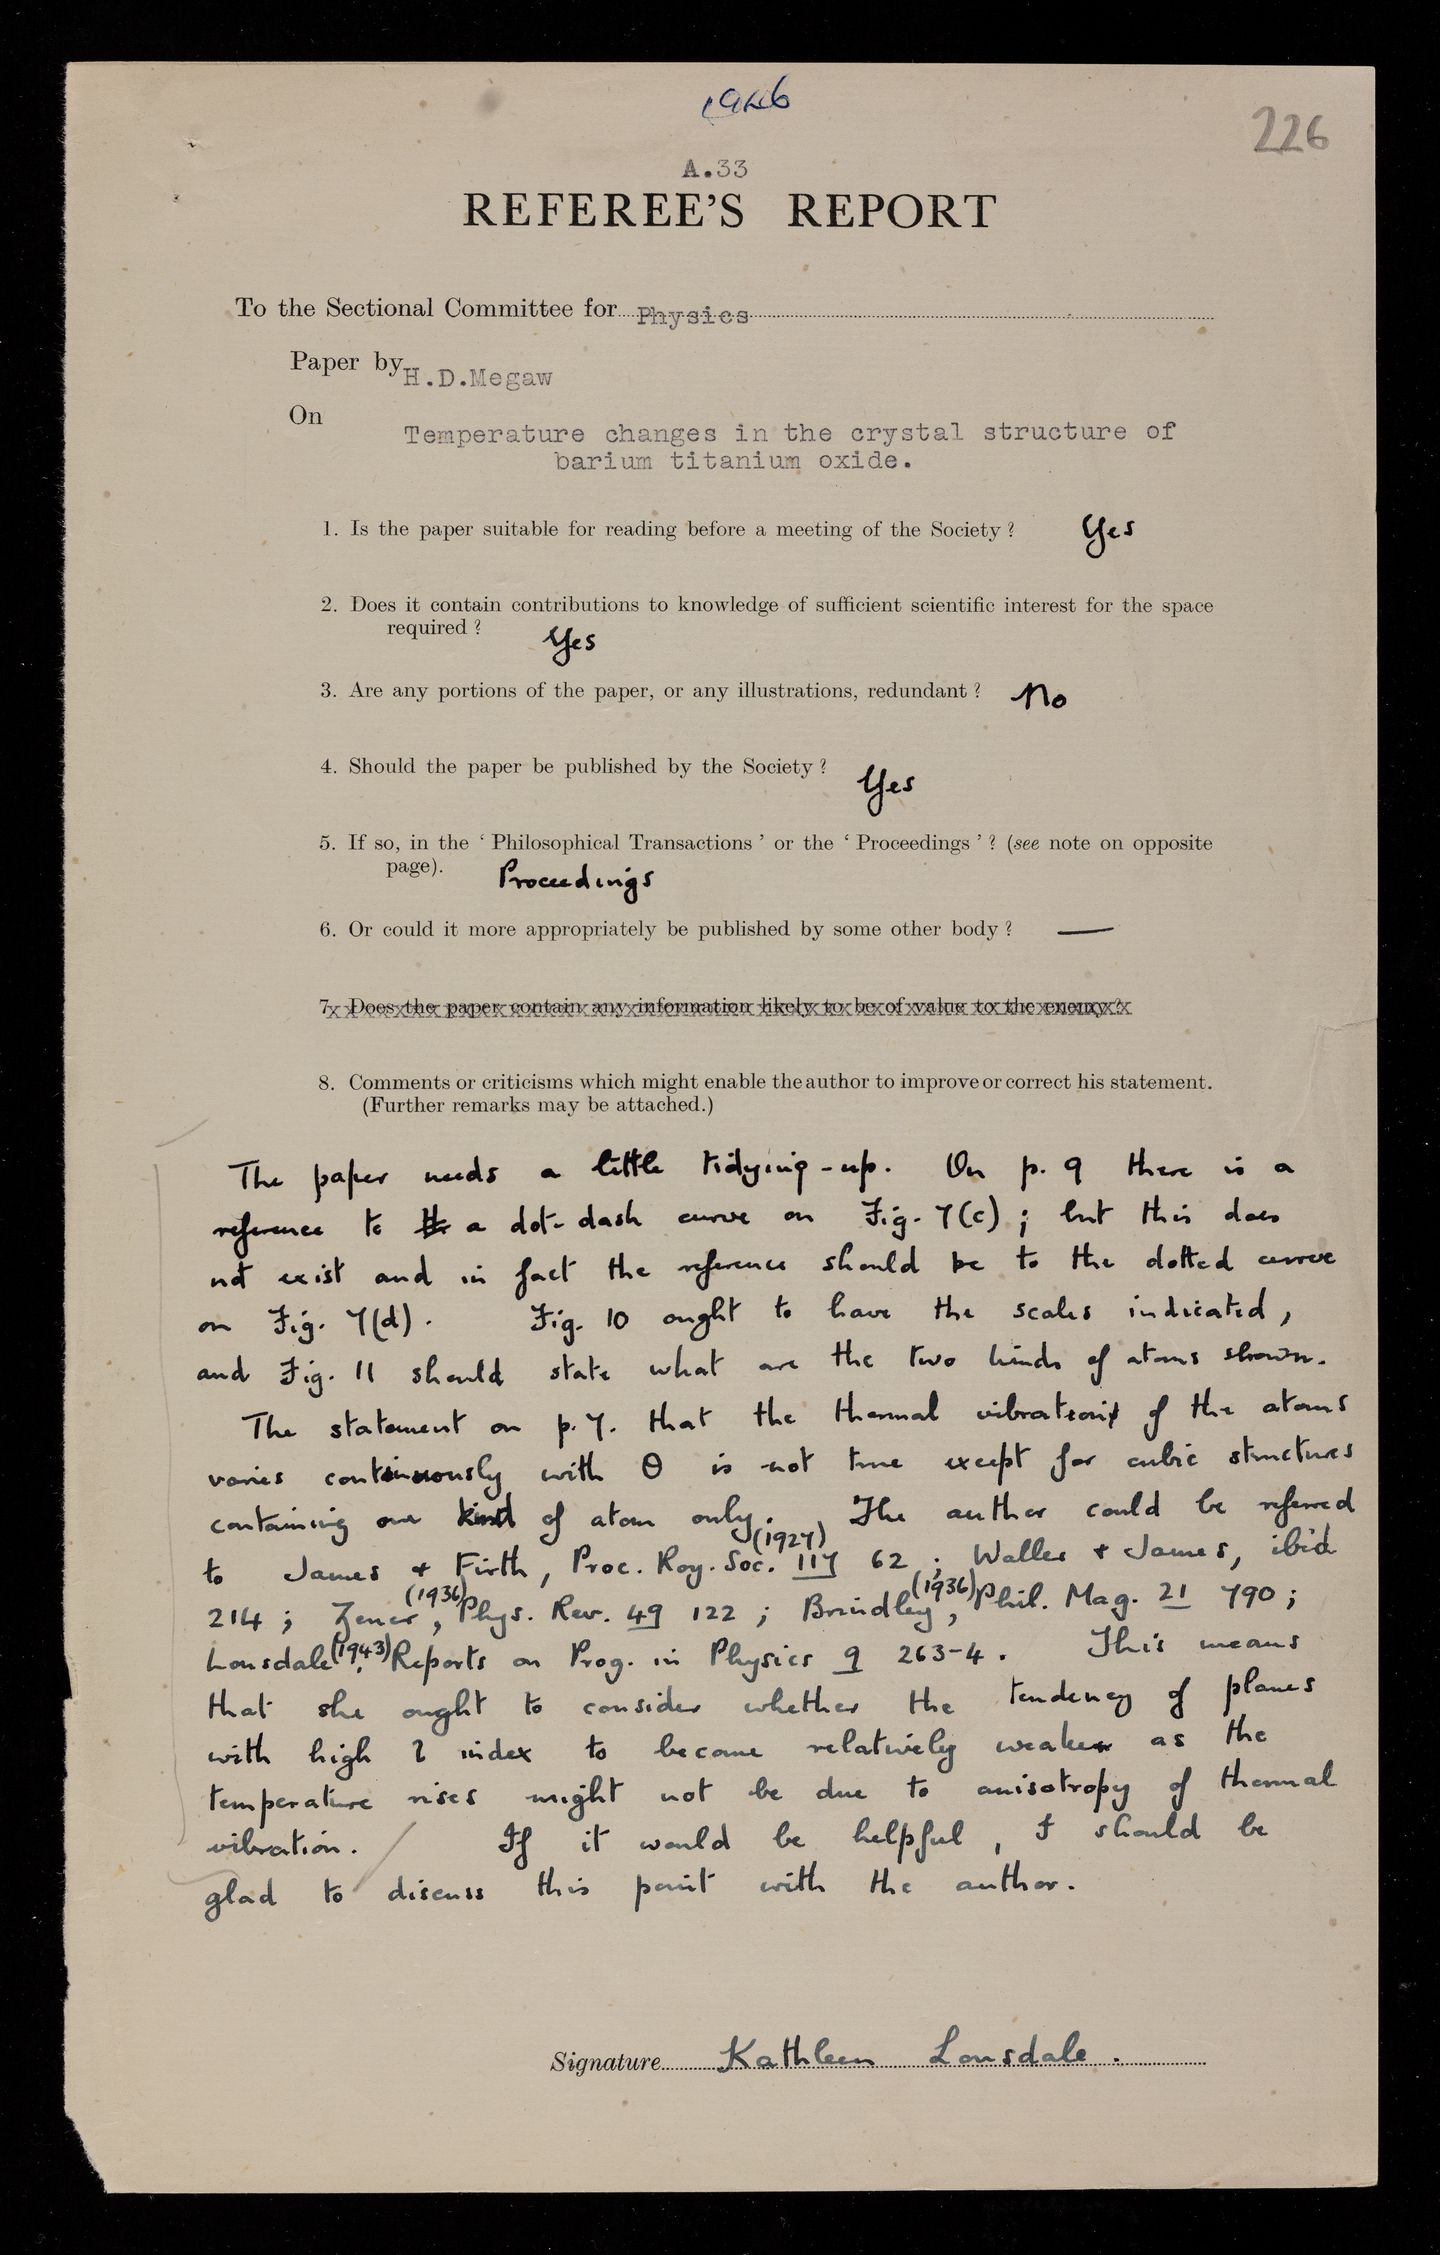 1946
226
A.33
REFEREE'S REPORT
To the Sectional Committee for Physics
Paper by H.D.Megaw
On
Temperature changes in the crystal structure of
barium titanium oxide.
1. Is the paper suitable for reading before a meeting of the Society? Yes
2. Does it contain contributions to knowledge of sufficient scientific interest for the space
required? Yes
3. Are any portions of the paper, or any illustrations, redundant? No
4. Should the paper be published by the Society? Yes
5. If so, in the ‘Philosophical Transactions’ or the ‘Proceedings’? (see note on opposite
page). Proceedings
6. Or could it more appropriately be published by some other body? —
7. Does the paper contain any information likely to be of value to the enemy?
8. Comments or criticisms which might enable the author to improve or correct his statement.
(Further remarks may be attached.)
The paper needs a little tidying-up. On p. 9 there is a
reference to a dot-dash curve on Fig. 7(c); but this does
not exist and in fact the reference should be to the dotted curve
on Fig. 7(d). Fig. 10 ought to have the scales indicated,
and Fig. 11 should state what are the two kinds of atoms shown.
The statement on p. 7. that the thermal vibration of the atoms
varies continuously with θ is not true except for cubic structures
containing one kind of atom only. The author could be referred
to James & Firth, Proc. Roy. Soc. (1927) 117 62; Waller & James, ibid
214; Zener (1936), Phys. Rev. 49 122; Brindley (1936), Phil. Mag. 21 790;
Lonsdale (1943), Reports on Prog. in Physics 9 263-4. This means
that she ought to consider whether the tendency of planes
with high l index to become relatively weaker as the
temperature rises might not be due to anisotropy of thermal
vibration. If it would be helpful, I should be
glad to discuss this point with the author.
Signature Kathleen Lonsdale.